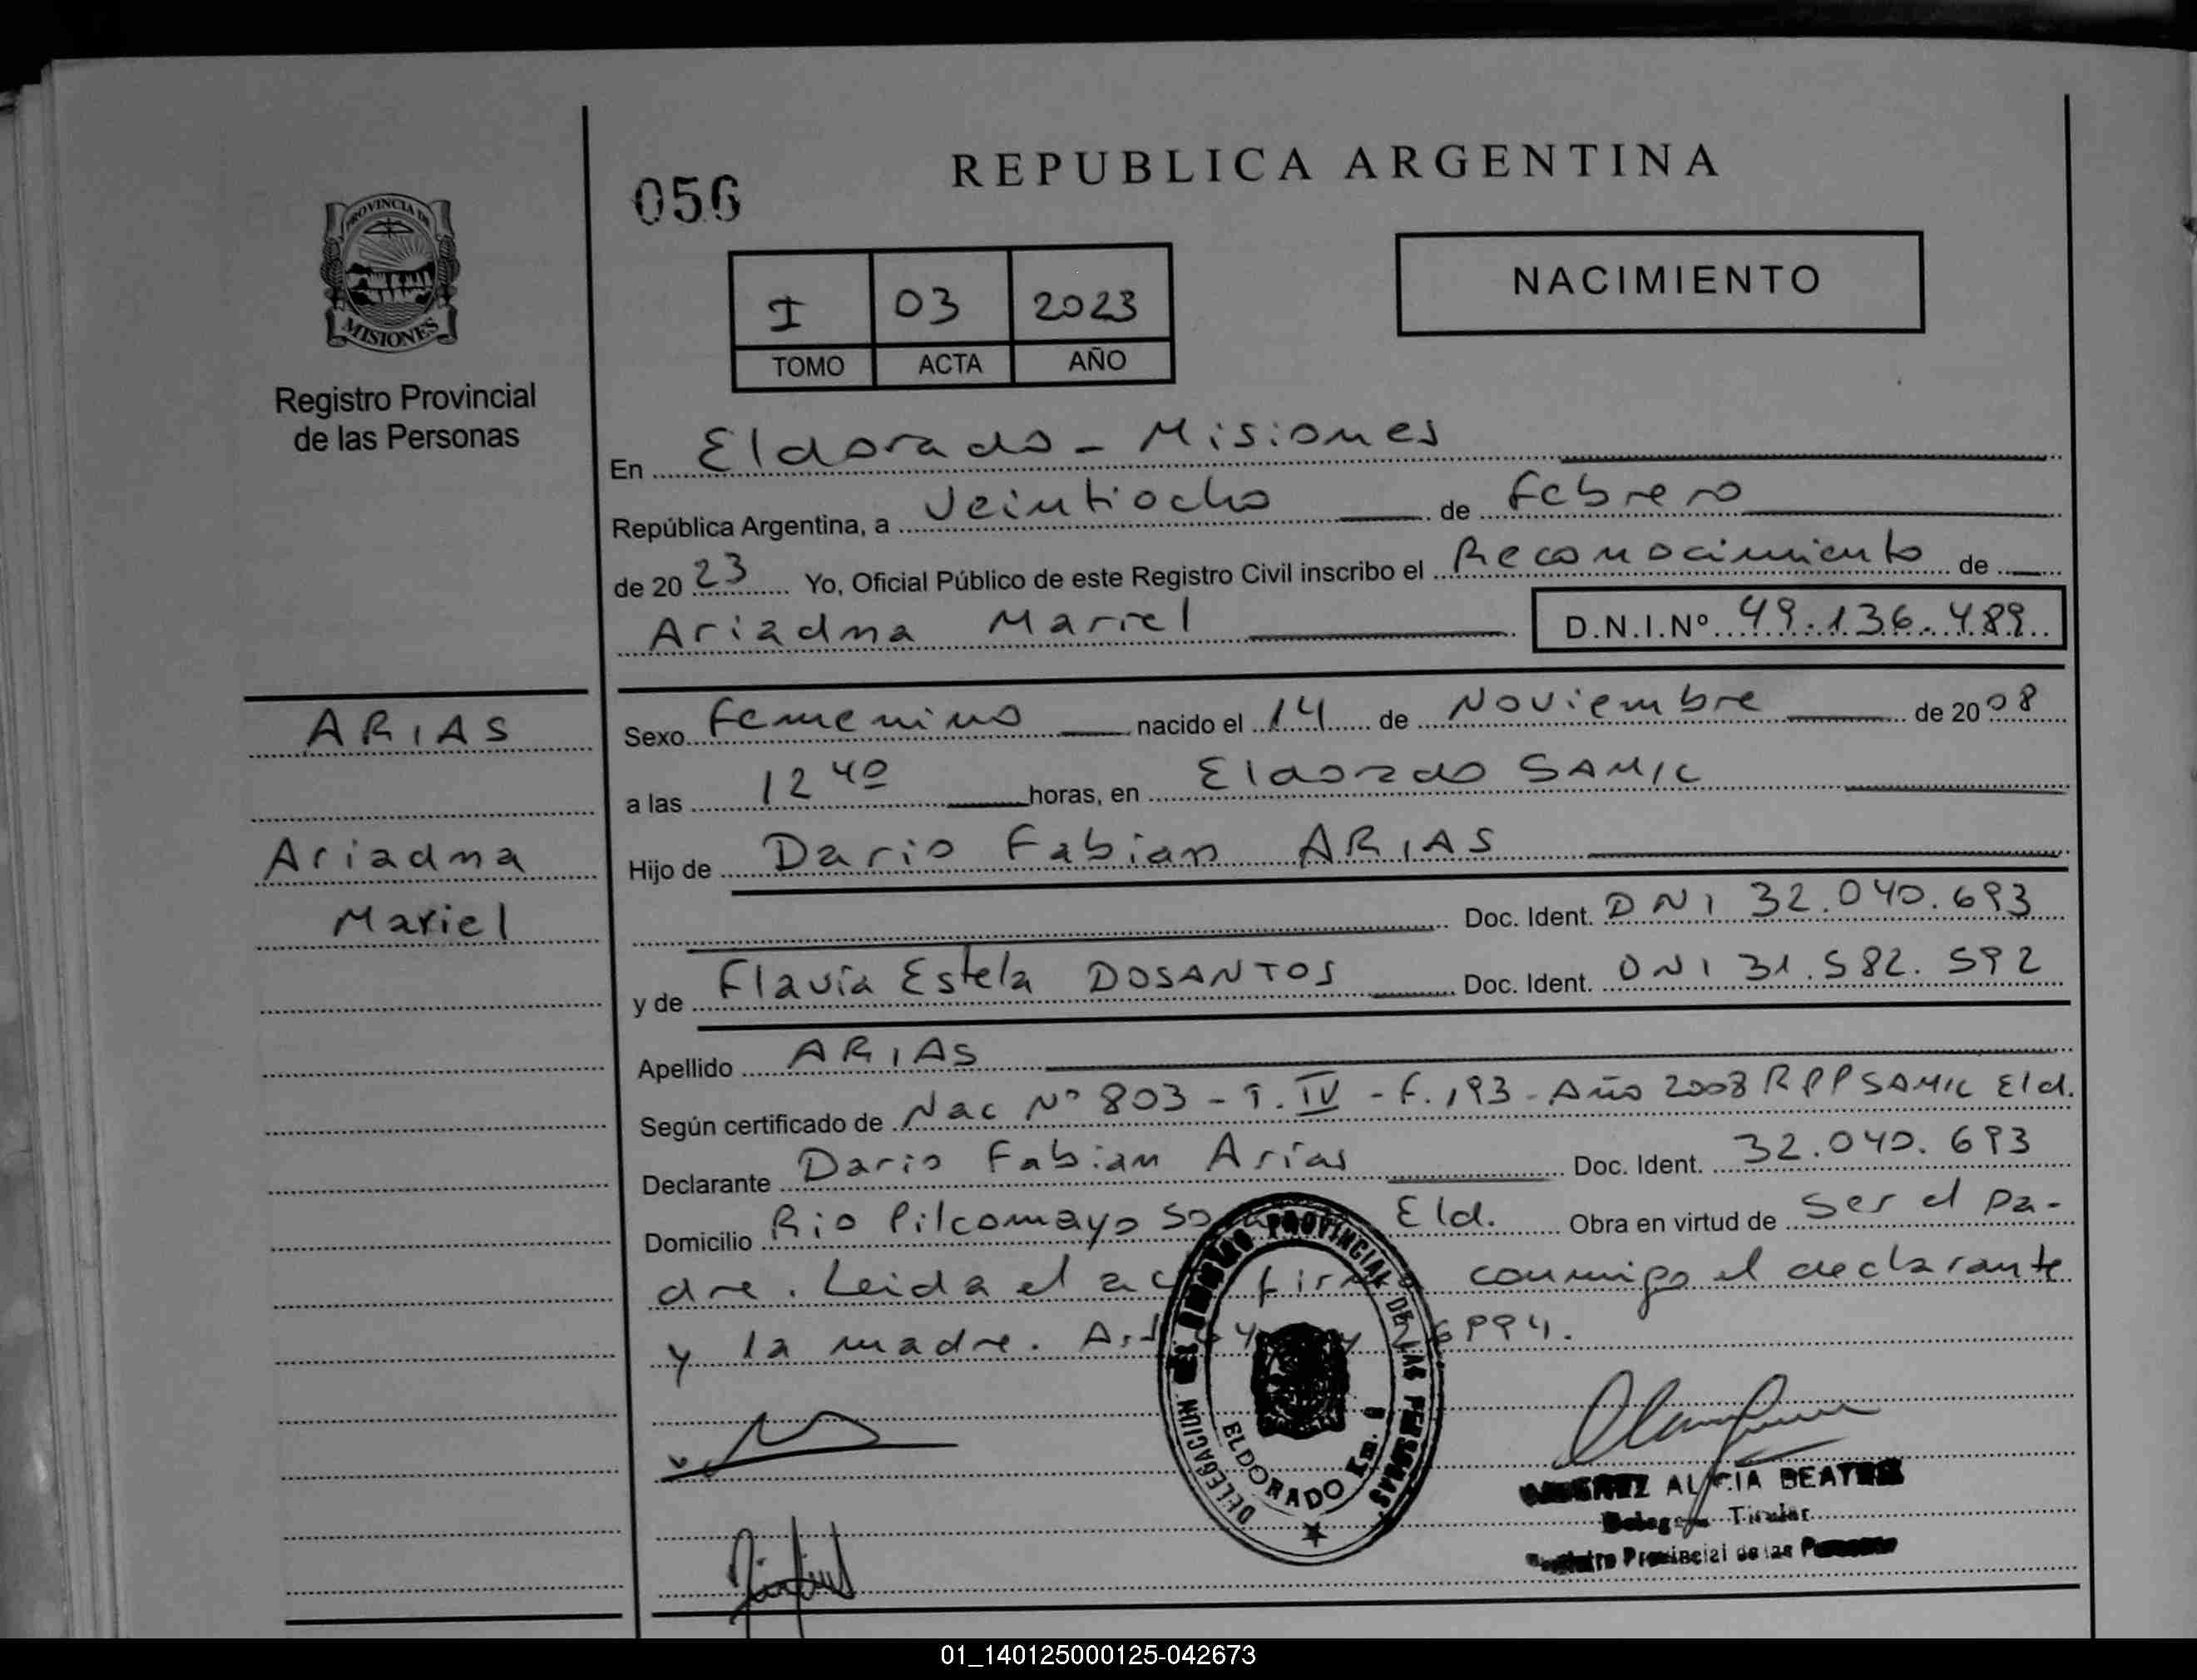 PROVINCIA DE
MISIONES
Registro Provincial
de las Personas
ARIAS
Ariadna
Mariel
056
REPUBLICA ARGENTINA
I 03 2023
TOMO ACTA AÑO
NACIMIENTO
En Eldorado - Misiones
República Argentina, a Veintiocho de Febrero
de 2023 Yo, Oficial Público de este Registro Civil inscribo el Reconocimiento de
Ariadna Mariel D.N.I.Nº 49.136.489
Sexo Femenino nacido el 14 de Noviembre de 2008
a las 12 40 horas, en Eldorado SAMIC
Hijo de Dario Fabian ARIAS
Doc. Ident. DNI 32.040.693
y de Flavia Estela DOSANTOS Doc. Ident. DNI 31.582.592
Apellido ARIAS
Según certificado de Nac Nº 803 - T. IV - F. 193 - Año 2008 RPP SAMIC Eld.
Declarante Dario Fabian Arias Doc. Ident. 32.040.693
Domicilio Rio Pilcomayo Eld. Obra en virtud de ser el pa-
dre. Leida el firma conmigo el declarante
y la madre. 26994.
PROVINCIAL DE LAS PERSONAS
DELEGACION
ELDORADO Km.
ALICIA BEATRIZ
Titular
Registro Provincial de las Personas
01_140125000125-042673